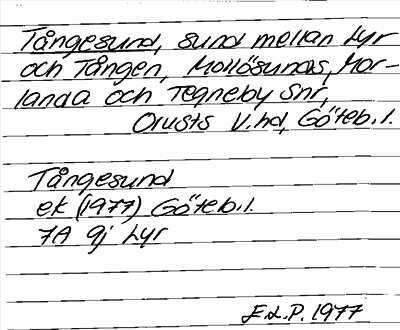 Tångesund, sund mellan Lyr
och Tången, Mollösunds, Mor-
landa och Tegneby snr,
Orusts V.hd, Göteb.l.
Tångesund
ek (1977) Göteb.l.
7A 9j Lyr
E.L.P. 1977